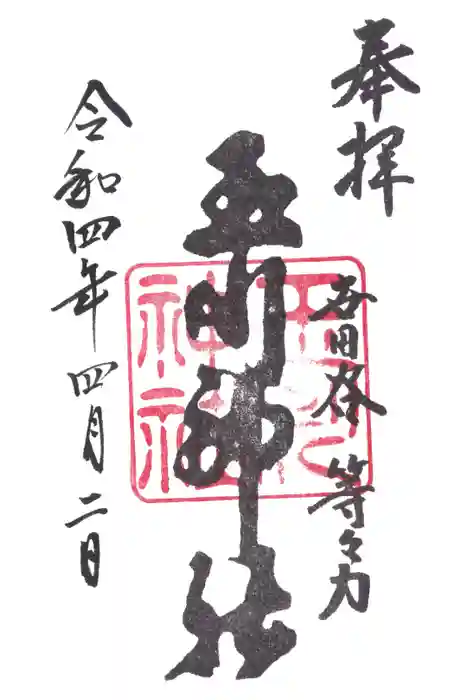 奉拝
世田谷 等々力
玉川神社
神社
令和四年 四月二日